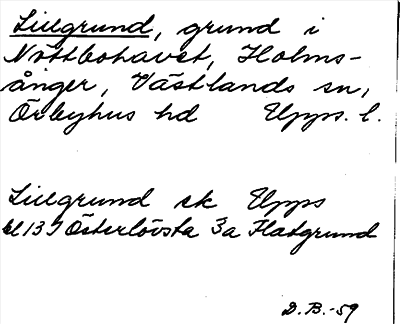 Lillgrund, grund i
Nöttbohavet, Holms-
ånger, Västlands sn,
Örbyhus hd Upps. l.
Lillgrund sk Upps
bl 139 Österlövsta 3a Flatgrund
D.B.-59